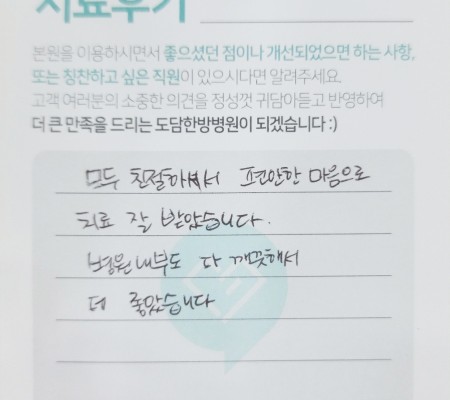 치료후기
본원을 이용하시면서 좋으셨던 점이나 개선되었으면 하는 사항,
또는 칭찬하고 싶은 직원이 있으시다면 알려주세요.
고객 여러분의 소중한 의견을 정성껏 귀담아듣고 반영하여
더 큰 만족을 드리는 도담한방병원이 되겠습니다 :)
모두 친절하셔서 편안한 마음으로
치료 잘 받았습니다.
병원 내부도 다 깨끗해서
더 좋았습니다